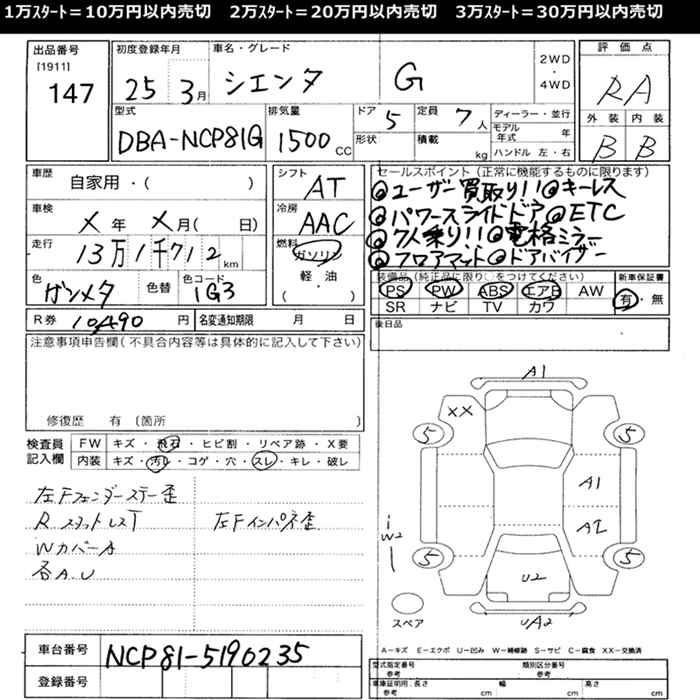 1万スタート＝10万円以内売切　2万スタート＝20万円以内売切　3万スタート＝30万円以内売切
出品番号
[1911]
147
初度登録年月
25 3月
車名・グレード
シエンタ G
2WD
・
4WD
評価点
RA
外装 内装
B B
型式
DBA-NCP81G
排気量
1500 CC
ドア 5
形状
定員 7 人
積載 kg
ディーラー・並行
モデル年式 年
ハンドル 左・右
車歴
自家用・( )
車検
X 年 X 月( 日)
走行
13万1千712 km
色
ガンメタ
色替
色コード
1G3
シフト
AT
冷房
AAC
燃料
ガソリン
軽・油
( )
セールスポイント(正常に機能するものに限ります)
◎ユーザー買取り!!◎キーレス
◎パワースライドドア◎ETC
◎7人乗り!!◎電格ミラー
◎フロアマット◎ドアバイザー
装備品(純正品に限り○をつけてください)
PS PW ABS エアB AW
SR ナビ TV カワ
新車保証書
有・無
R券 10,490 円
名変通知期限 月 日
後日品
注意事項申告欄(不具合内容等は具体的に記入して下さい)
修復歴 有 (箇所
検査員
記入欄
FW キズ・飛石・ヒビ割・リペア跡・X要
内装 キズ・汚レ・コゲ・穴・スレ・キレ・破レ
左Fフェンダーステー歪
R スタットレスT
左Fインパネ歪
Wカバーキ
各A.U
A1
XX
5
5
A1
A2
W2
5
5
U2
UA2
スペア
A－キズ E－エクボ U－凹み W－補修跡 S－サビ C－腐食 XX－交換済
車台番号
NCP81-5190235
登録番号
型式指定番号
参考
類別区分番号
参考
車庫証明用、長さ
参考 cm
幅
cm
高さ
cm